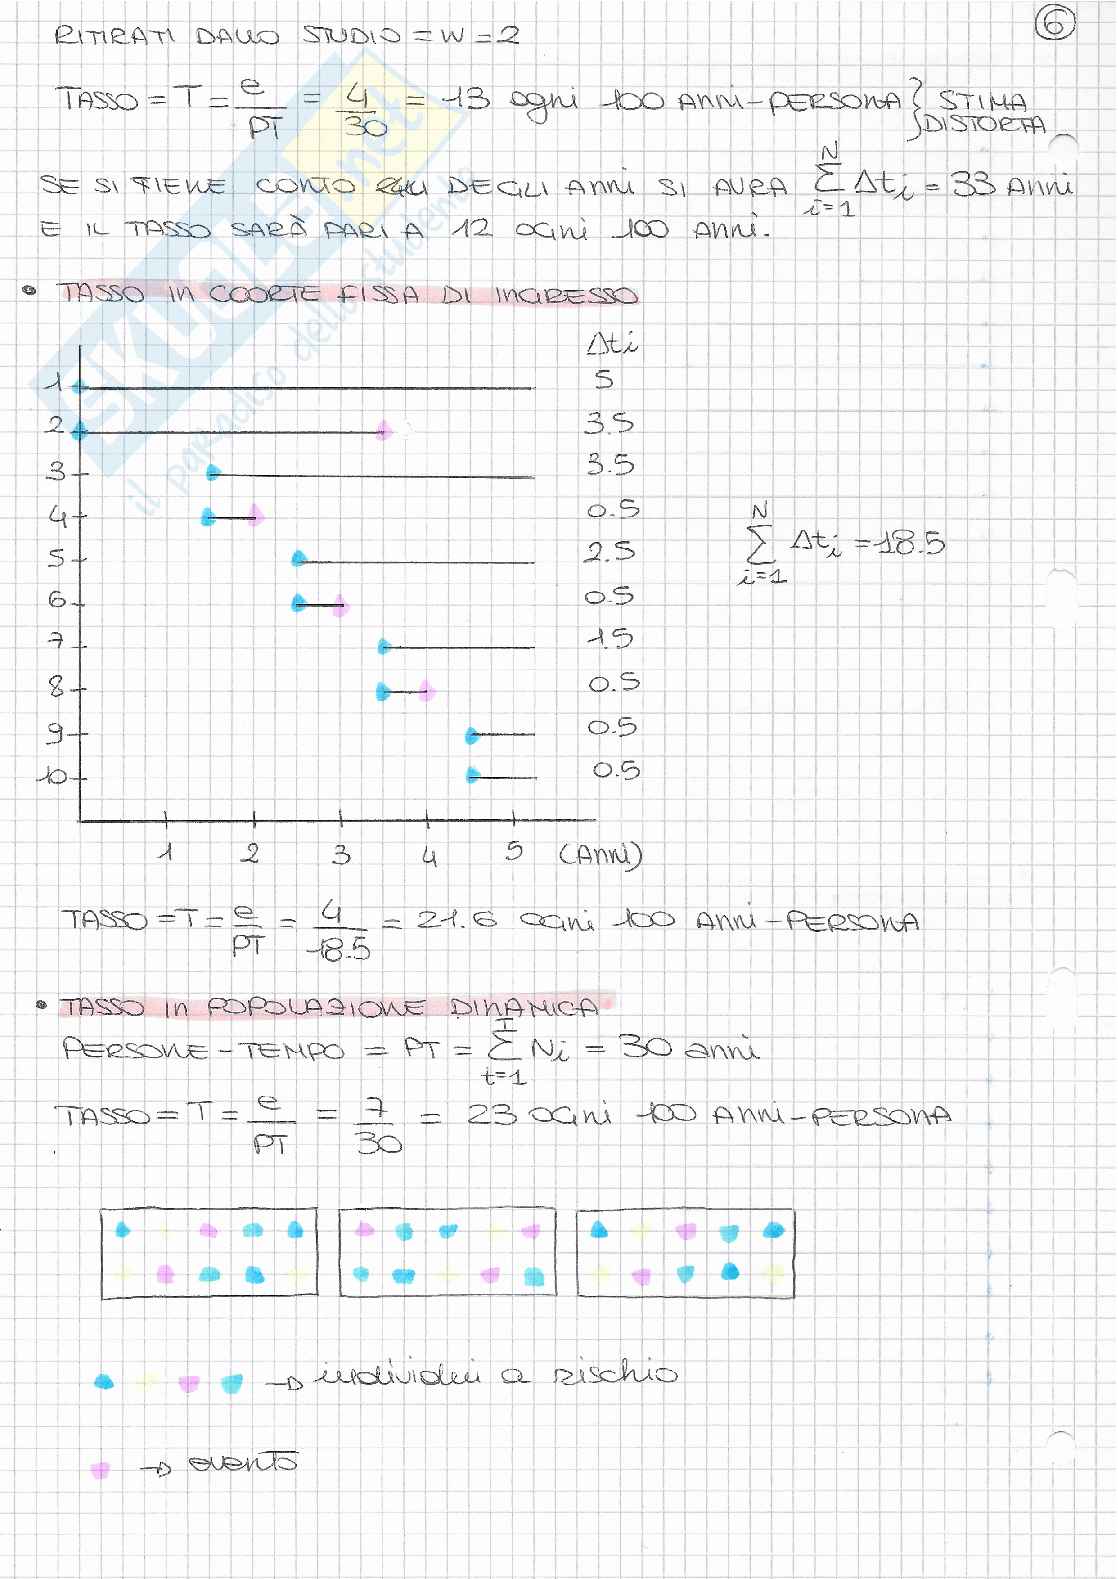 6
RITIRATI DALLO STUDIO = W = 2
TASSO = T = e/PT = 4/30 = 13 ogni 100 ANNI-PERSONA } STIMA DISTORTA
SE SI TIENE CONTO DEGLI ANNI SI AVRA N Σ i=1 Δti = 33 ANNI
E IL TASSO SARÀ PARI A 12 OGNI 100 ANNI.
• TASSO IN COORTE FISSA DI INGRESSO
Δti
1 5
2 3.5
3 3.5
4 0.5
5 2.5
6 0.5
7 1.5
8 0.5
9 0.5
10 0.5
N Σ i=1 Δti = 18.5
1 2 3 4 5 (ANNI)
TASSO = T = e/PT = 4/18.5 = 21.6 OGNI 100 ANNI-PERSONA
• TASSO IN POPOLAZIONE DINAMICA
PERSONE-TEMPO = PT = I Σ t=1 Ni = 30 anni
TASSO = T = e/PT = 7/30 = 23 OGNI 100 ANNI-PERSONA
→ individui a rischio
→ evento
SKUOLA.net
il paradiso dello studente